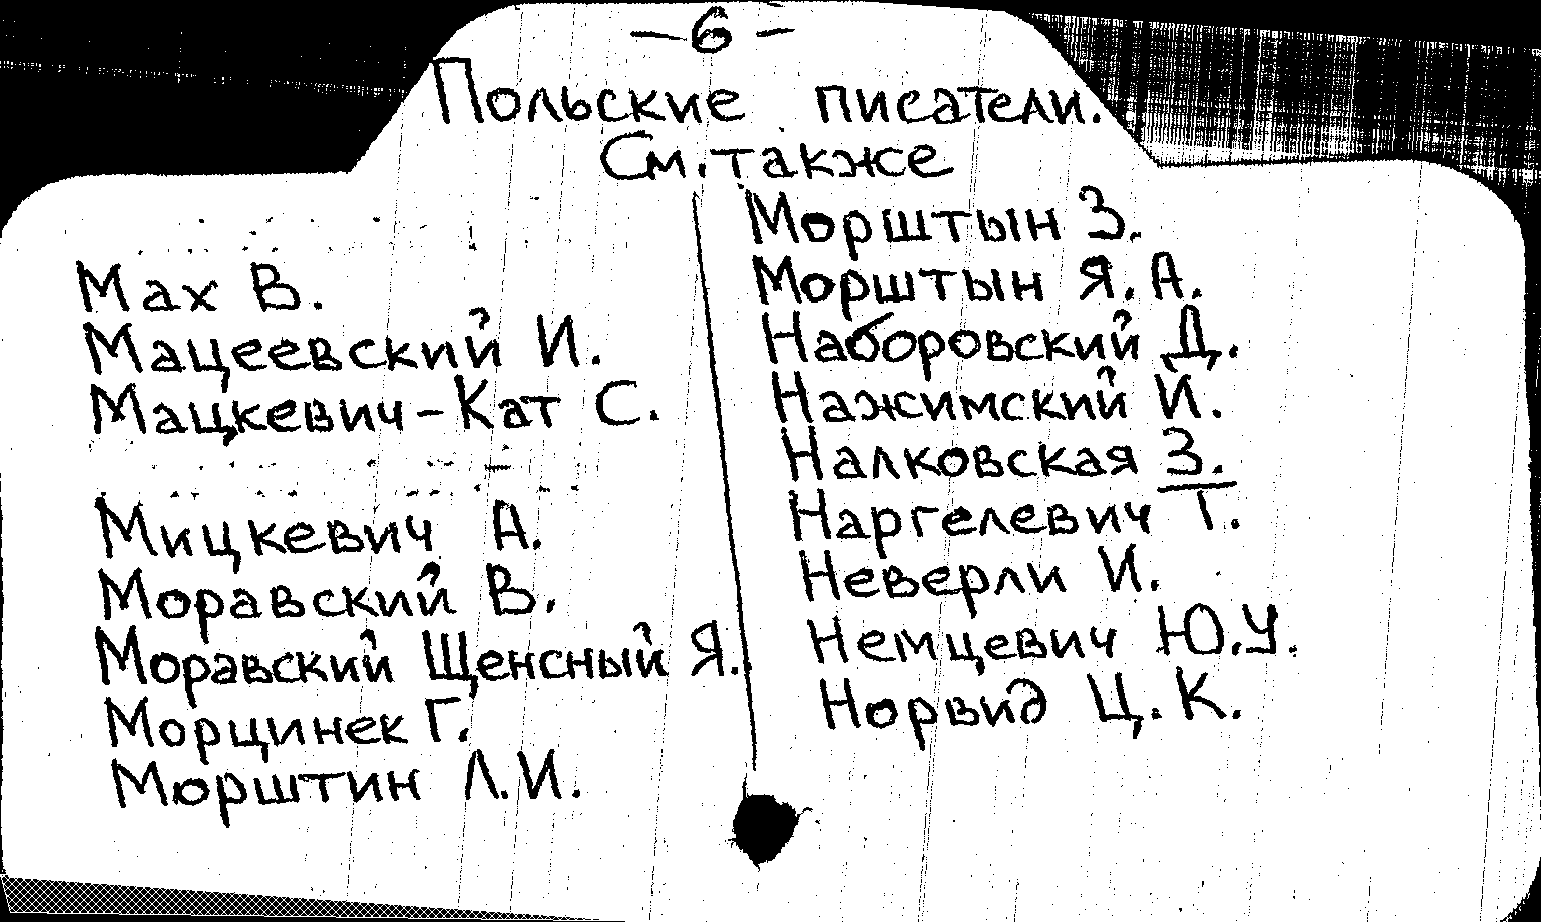 — 6 —
Польские писатели.
См. также
Мах В.
Мацеевский И.
Мацкевич-Кат С.
Мицкевич А.
Моравский В.
Моравский Щенсный Я.
Морцинек Г.
Морштин Л.И.
Морштын З.
Морштын Я.А.
Наборовский Д.
Нажимский И.
Налковская З.
Наргелевич Т.
Неверли И.
Немцевич Ю.У.
Норвид Ц.К.